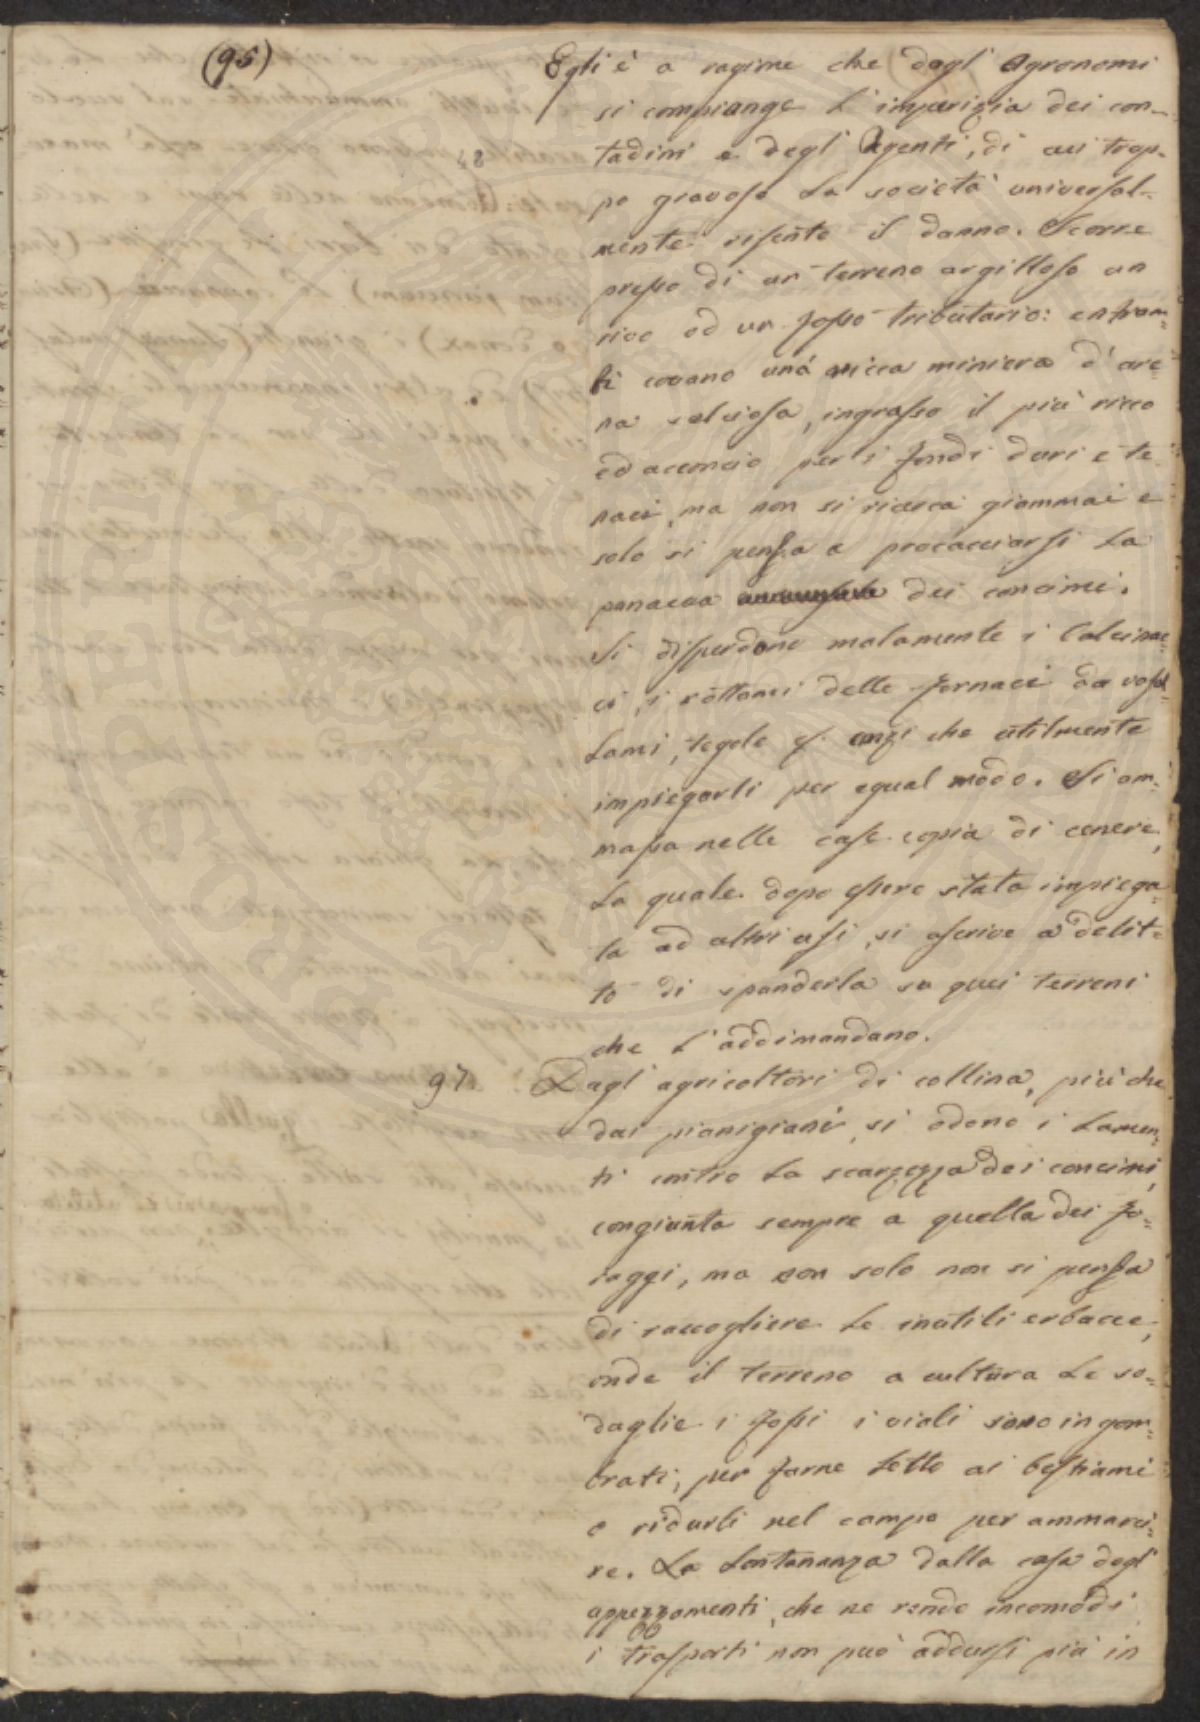 (95)
Egli è a ragione che dagl' Agronomi
si compiange l'imperizia dei con-
tadini e degl' Agenti, di cui trop-
po gravoso la società universal-
mente risente il danno. Scorre
presso di un terreno argilloso un
rivo od un fosso tributario: entram-
bi covano una ricca miniera d'are-
na selciosa, ingrasso il più ricco
ed acconcio per i fondi duri e te
naci, ma non si ricerca giammai e
solo si pensa a procacciarsi la
panacea dei concimi.
Si disperdono malamente i Calcinac-
ci, i rottami delle fornaci da vasel-
lami, tegole &. anzi che utilmente
impiegarli per egual modo. Si am-
massa nelle case copia di cenere,
la quale dopo essere stata impiega-
ta ad altri usi, si ascrive a delit-
to di spanderla su quei terreni
che l'addimandano.
97. Dagl' agricoltori di collina, più che
dai pianigiani, si odono i lamen-
ti contro la scarzezza dei concimi,
congiunta sempre a quella dei fo-
raggi, ma non solo non si pensa
di raccogliere le inutili erbacce,
onde il terreno a cultura le so-
daglie i fossi i viali sono ingom-
brati, per farne letto ai bestiami
o ridurli nel campo per ammarci-
re. La lontananza dalla casa degl'
appezzamenti, che ne rende incomodi
i trasporti non può addursi più in